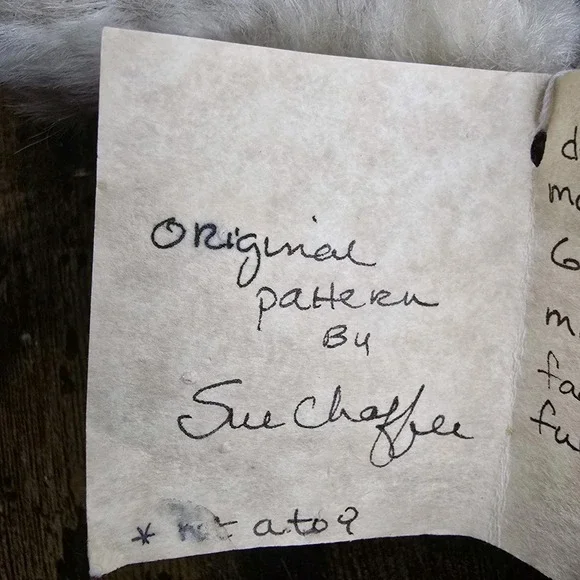 Original
pattern
By
Sue Chaffee
* a to 9
d
mo
6
m
fa
fu